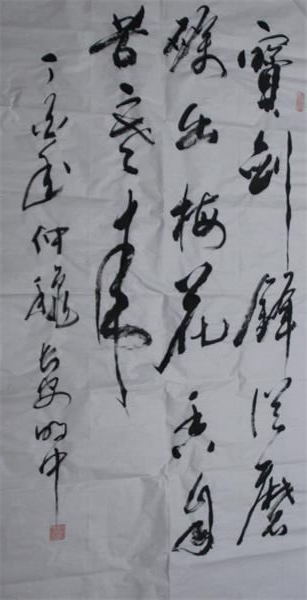 寶劍鋒從磨
礪出梅花香自
苦寒來
丁酉年仲穐長安明中